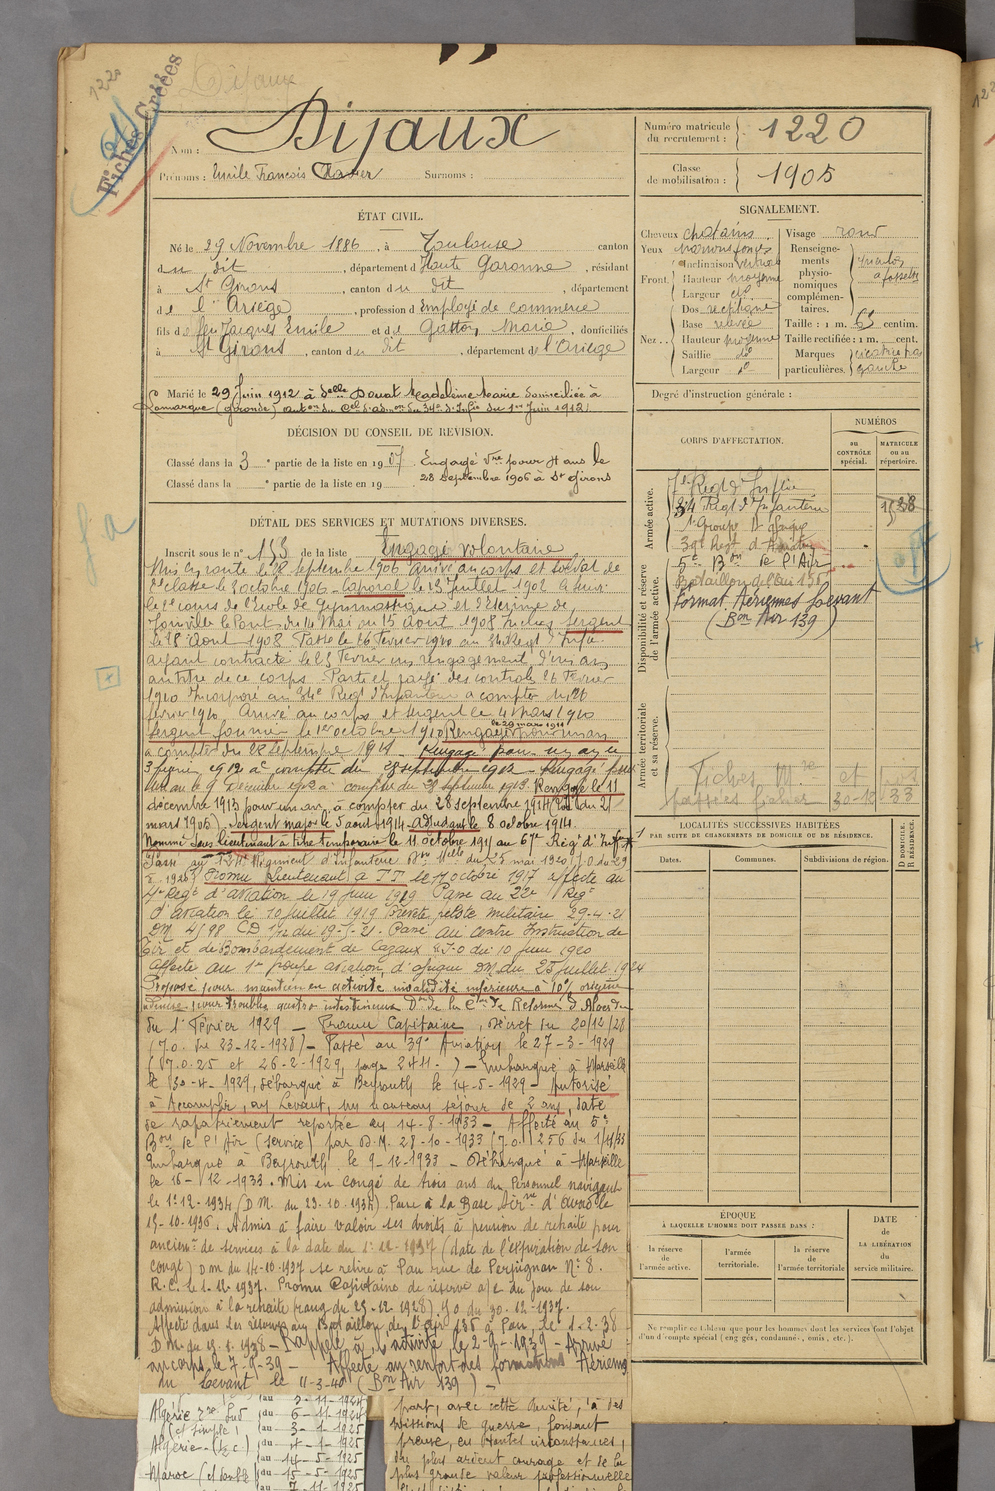 1220
Fiches Créées
Dijaux
Nom : Dijaux
Prénoms : Emile François Xavier Surnoms :
Numéro matricule du recrutement : 1220
Classe de mobilisation : 1905
ÉTAT CIVIL.
Né le 29 Novembre 1886, à Toulouse canton
du dit, département d Haute Garonne, résidant
à St Girons, canton du dit, département
de l'Ariège, profession d Employé de commerce
fils de feu Jacques Emile et de Gaston, Marie, domiciliés
à St Girons, canton du dit, département de l'Ariège
Marié le 29 Juin 1912 à Delle Douat Madeleine Marie domiciliée à
Lamarque (Gironde) auton du Cel d'admon du 34e d'Infie du 1er Juin 1912
SIGNALEMENT.
Cheveux chatains
Yeux marrons foncés
Front. Inclinaison verticale
Hauteur moyenne
Largeur do
Nez. Dos rectiligne
Base relevée
Hauteur moyenne
Saillie do
Largeur do
Visage rond
Renseignements physionomiques complémentaires. menton à fossette
Taille : 1 m. 63 centim.
Taille rectifiée : 1 m. cent.
Marques particulières. cicatrice
gauche
Degré d'instruction générale :
DÉCISION DU CONSEIL DE REVISION.
Classé dans la 3e partie de la liste en 1907. Engagé Vre pour 4 ans le
Classé dans la e partie de la liste en 19 28 Septembre 1906 à St Girons
CORPS D'AFFECTATION.
NUMÉROS
au CONTRÔLE spécial.
MATRICULE ou au répertoire.
Armée active.
Regt d'Inftie
34 Regt d'Infanterie 1538
1er Groupe d'Afrique
39e Regt d'Aviation
Disponibilité et réserve de l'armée active.
5e Bon de l'Air
Bataillon de l'Air 136
Format. Aériennes Levant
(Bon Air 139)
Armée territoriale et sa réserve.
Fiches Mre et
passées fichier 30-12 33
DÉTAIL DES SERVICES ET MUTATIONS DIVERSES.
Inscrit sous le n° 153 de la liste Engagé volontaire
Mis en route le 28 septembre 1906 arrivé au corps et soldat de
2e classe le 3 octobre 1906 - Caporal le 13 Juillet 1907 A suivi
le 1er cours de l'Ecole de Gymnastique et d'Escrime de
Joinville le Pont du 14 Mai au 15 Août 1908 Sergent
le 18 Août 1908 Passé le 26 février 1910 au 34e Regt d'Infie
ayant contracté le 25 février un rengagement d'un an
au titre de ce corps Parti et rayé des controls 26 février
1910 Incorporé au 34e Regt d'Infanterie a compter du 26
février 1910 Arrivé au corps et sergent le 4 Mars 1910
Sergent fourrier le 1er octobre 1910 Rengagé le 29 mars 1911 pour un an
a compter du 28 septembre 1911 Rengagé pour un an le
3 février 1912 à compter du 28 septembre 1912 - Rengagé pour
un an le 9 Décembre 1912 à compter du 28 septembre 1913 Rengagé le 11
décembre 1913 pour un an, à compter du 28 septembre 1914 (Loi du 21
mars 1905). Sergent major le 5 août 1914 - adjudant le 8 octobre 1914.
Nommé Sous lieutenant à titre temporaire le 11 octobre 1914 au 67e Rég d'Inf
Promu Lieutenant à TT le 7 octobre 1917 affecté au
4e Regt d'aviation le 19 Juin 1919 Passé au 22e Regt
d'aviation le 10 Juillet 1919 Breveté pilote militaire 29-4-21
DM 4598 CD 1/12 du 19-5-21. Passé au centre Instruction de
Tir et de Bombardement de Cazaux J.O du 10 Juin 1920
affecté au 1er groupe aviation d'afrique DM du 25 Juillet 1924
Proposé pour maintien en activité invalidité inférieure à 10% origine
pour troubles gastro intestinaux Don de la Cion de Réforme d'Alger du
du 1er Février 1929 - Promu Capitaine, Décret du 20/12/28
(J.O. du 23-12-1928) - Passé au 39e Aviation le 27-3-1929
(J.O. 25 et 26-2-1929, page 2411.) - Embarqué à Marseille
le 30-4-1929, débarqué à Beyrouth le 14-5-1929 - Autorisé
à Accomplir, au Levant, un nouveau séjour de 2 ans, date
de rapatriement reportée au 14-8-1933 - Affecté au 5e
Bon de l'Air (service) par D.M. 28-10-1933 (J.O. 256 du 1/11/33
Embarqué à Beyrouth le 9-12-1933 - Débarqué à Marseille
le 16-12-1933. Mis en congé de trois ans du Personnel navigant
le 1-12-1934 (D.M. du 23.10.1934). Passé à la Base Aérne d'
15-10-1936. Admis à faire valoir ses droits à pension de retraite pour
ancienté de services à la date du 1-12-1937 (date de l'expiration de son
congé) D.M du 14-10-1937 se retire à Pau rue de Perpignan N° 8.
R.C. le 1.12.1937. Promu Capitaine de réserve a/c du jour de son
admission à la retraite (rang du 25-12-1928) J.O du 30.12-1937.
Affecté dans les réserves au Bataillon de l'air 136 à Pau, le 1-2-38
D.M. du 1938 - Rappelé à l'activité le 2-9-1939 - Arrivé
au corps le 7-9-39 - Affecté au renfort des formations Aériennes
du Levant le 11-3-40 (Bon Air 139) -
LOCALITÉS SUCCESSIVES HABITÉES
PAR SUITE DE CHANGEMENTS DE DOMICILE OU DE RÉSIDENCE.
Dates. Communes. Subdivisions de région. D DOMICILE. R RÉSIDENCE.
ÉPOQUE
À LAQUELLE L'HOMME DOIT PASSER DANS :
la réserve de l'armée active.
l'armée territoriale.
la réserve de l'armée territoriale
DATE de LA LIBÉRATION du service militaire.
Ne remplir ce tableau que pour les hommes dont les services font l'objet
d'un décompte spécial (engagés, condamnés, omis, etc.).
Algérie Sud
(et simple)
Algérie
Maroc (et double
au 5-11-1924
du 6-11-1924
au 3-1-1925
du 4-1-1925
au 14-5-1925
du 15-5-1925
au 7-11-1925
part, avec cette unité, à des
missions de guerre, faisant
preuve, en toutes circonstances,
du plus ardent courage et de la
plus grande valeur professionnelle